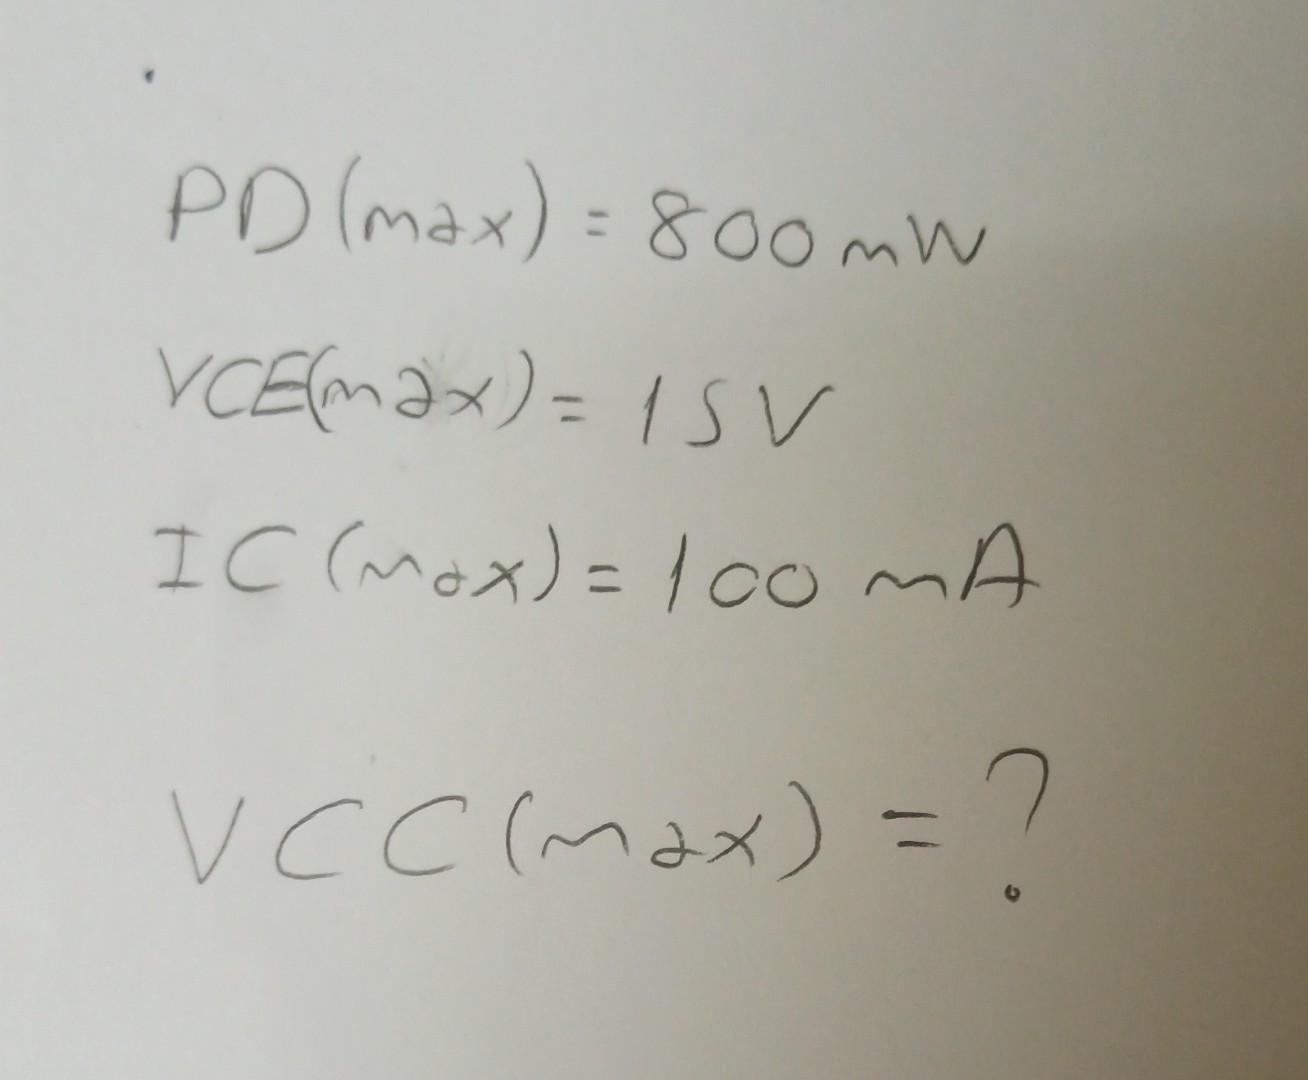 PD(max) = 800mW
VCE(max) = 15V
IC(max) = 100 mA
VCC(max) = ?